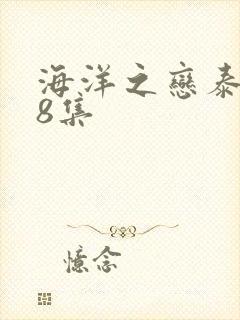 海洋之戀泰
8集
憶念